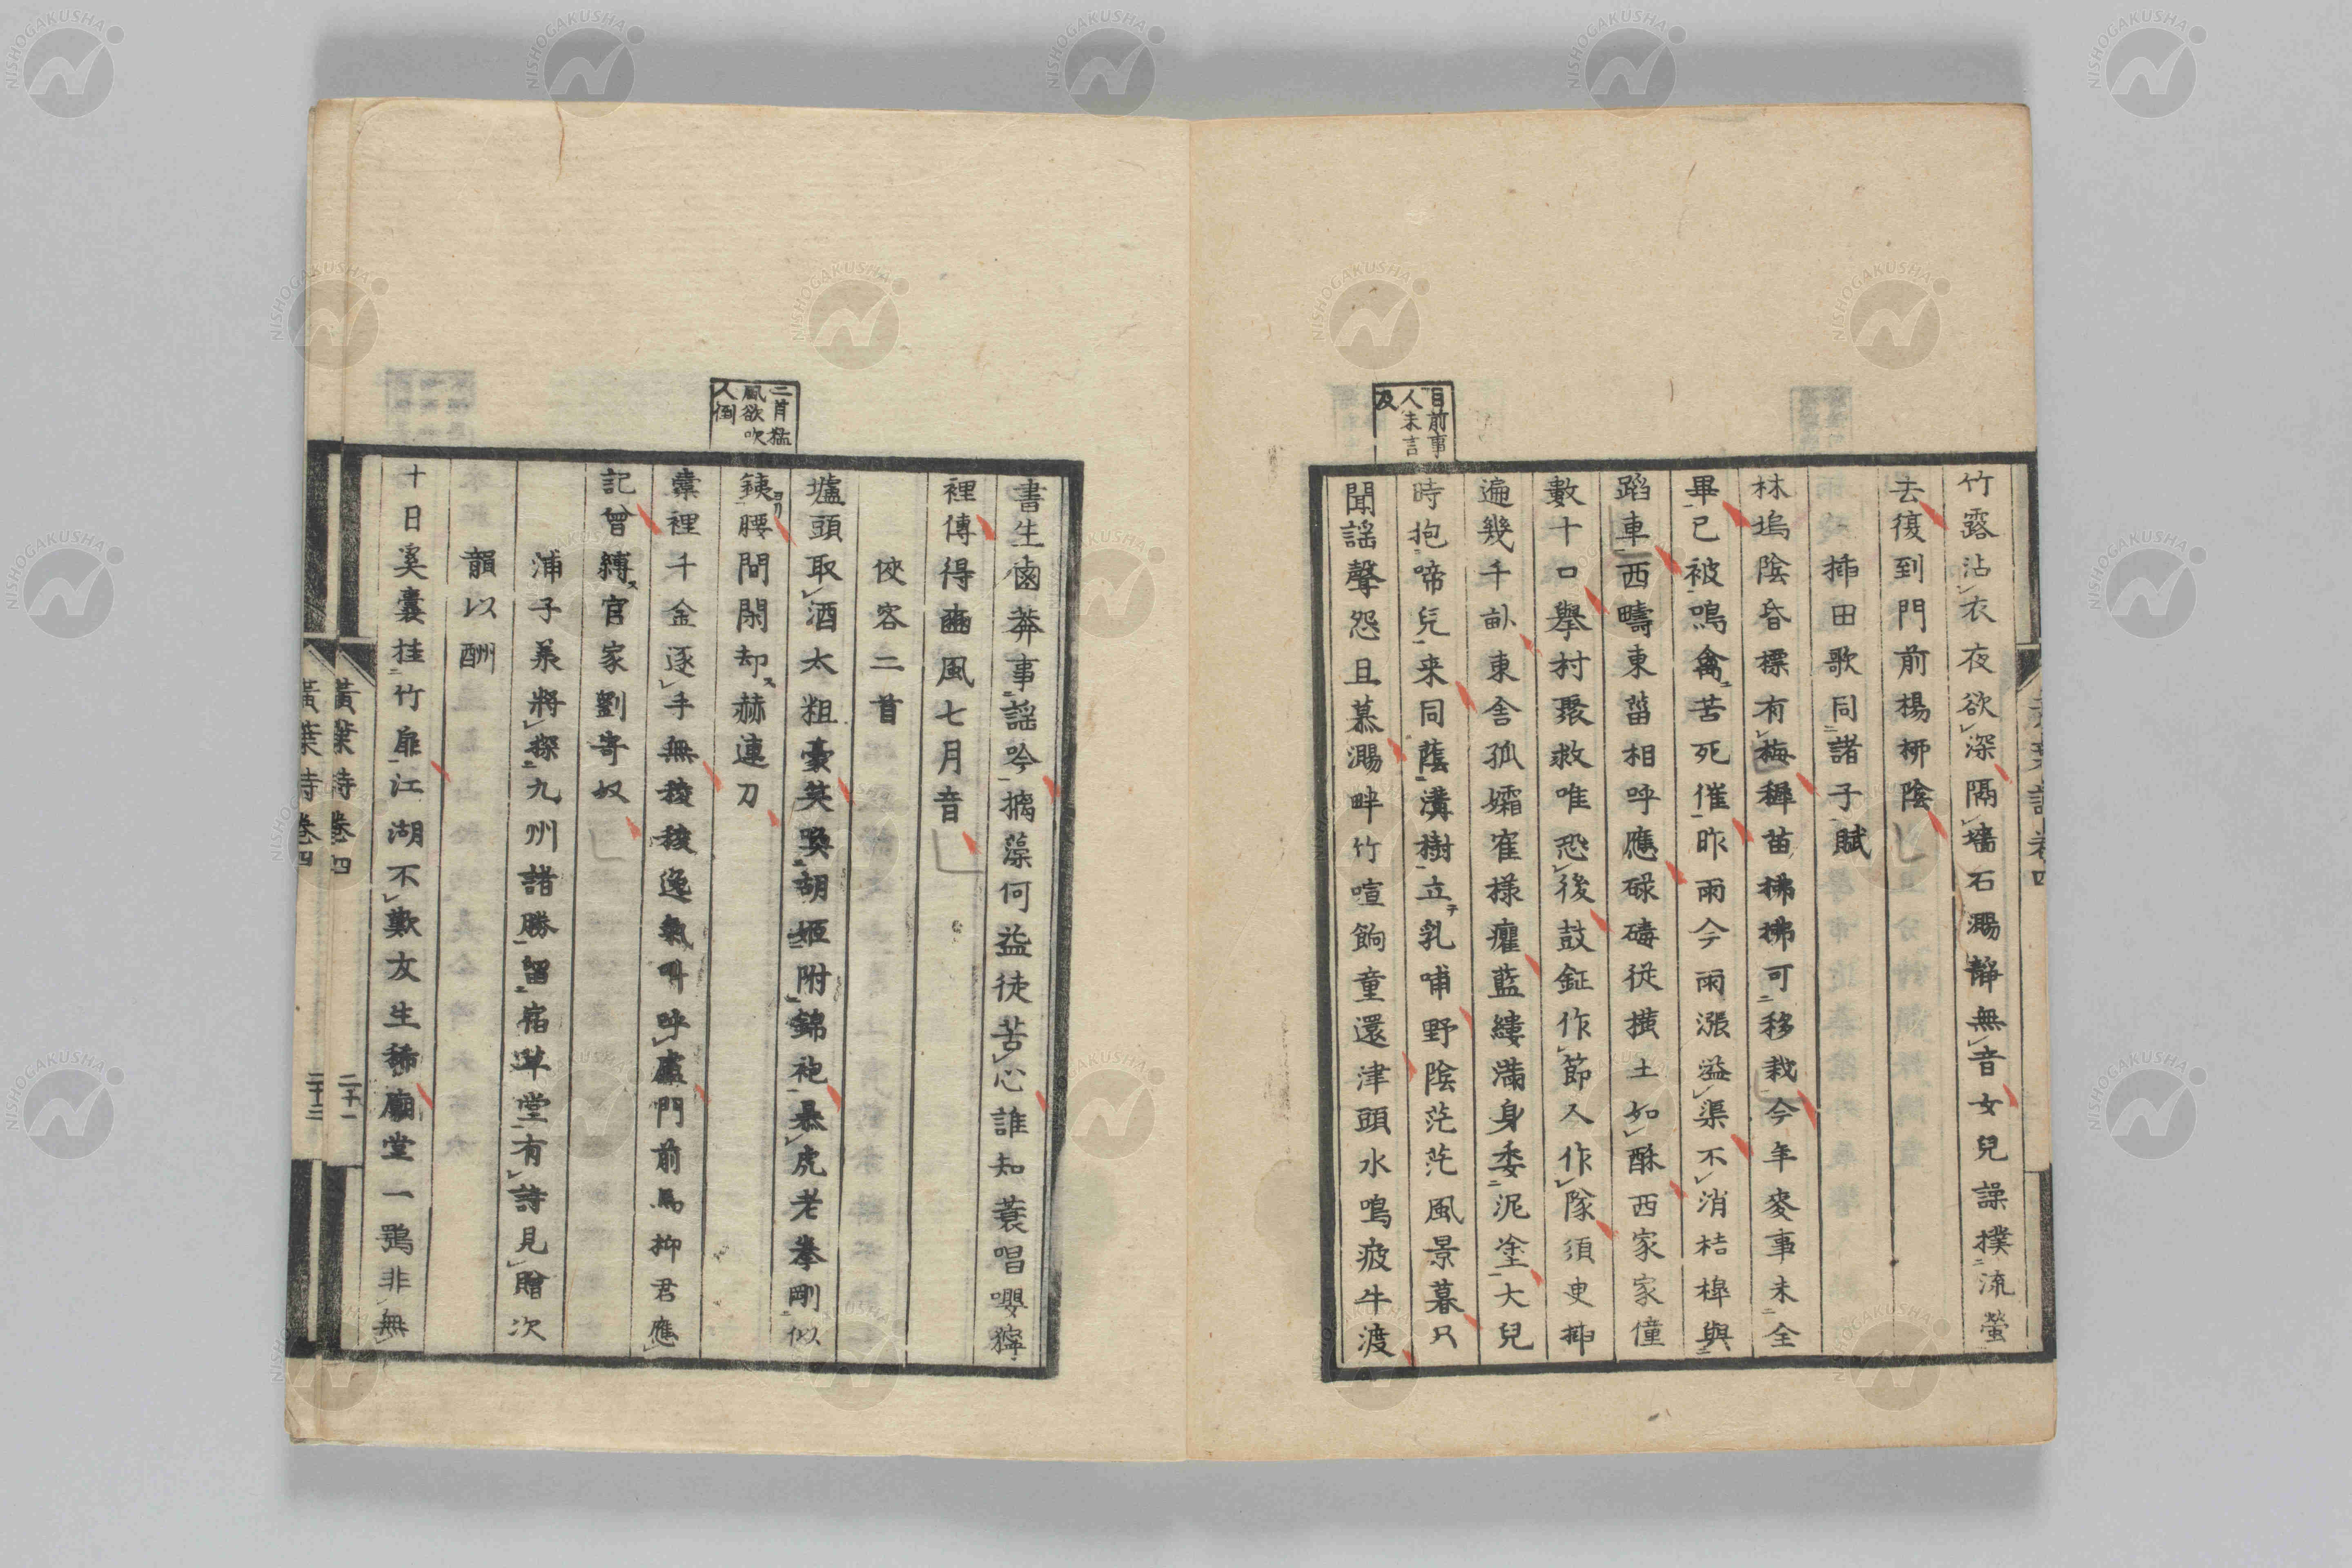 竹露沾衣夜欲深隔墻石瀨靜無音女兒譟撲流螢
去復到門前楊柳陰
插田歌同諸子賦
林塢陰昏標有梅穉苗拂拂可移栽今年麥事未全
畢已被鳴禽苦死催昨雨今雨漲溢渠不消桔槹與
蹈車西疇東菑相呼應碌碡從橫土如酥西家家僮
數十口擧村聚救唯恐後鼓鉦作節人作隊須臾揷
遍幾千畝東舍孤孀寉樣癯藍縷滿身委泥塗大兒
目前事
人未言
及
時抱啼兒来同蔭溝樹立乳哺野陰茫茫風景暮只
聞謡聲怨且慕瀨畔竹喧餉童還津頭水鳴疲牛渡
書生鹵莽事謡吟摛藻何益徒苦心誰知蓑唱嚶獰
裡傳得豳風七月音
俠客二首
二首猛
風欲吹
人倒
壚頭取酒太粗豪笑喚胡姬附錦袍暴虎老拳剛似
銕腰間閑却赫連刀
橐裡千金逐手無稜稜逸氣叫呼盧門前馬抑君應
記曾縛官家劉寄奴
浦子承將探九州諸勝留宿草堂有詩見贈次
韻以酬
十日奚囊挂竹扉江湖不歎友生稀廟堂一鶚非無
黃葉詩卷四
二十一
黃葉詩卷四
二十二
NISHOGAKUSHA